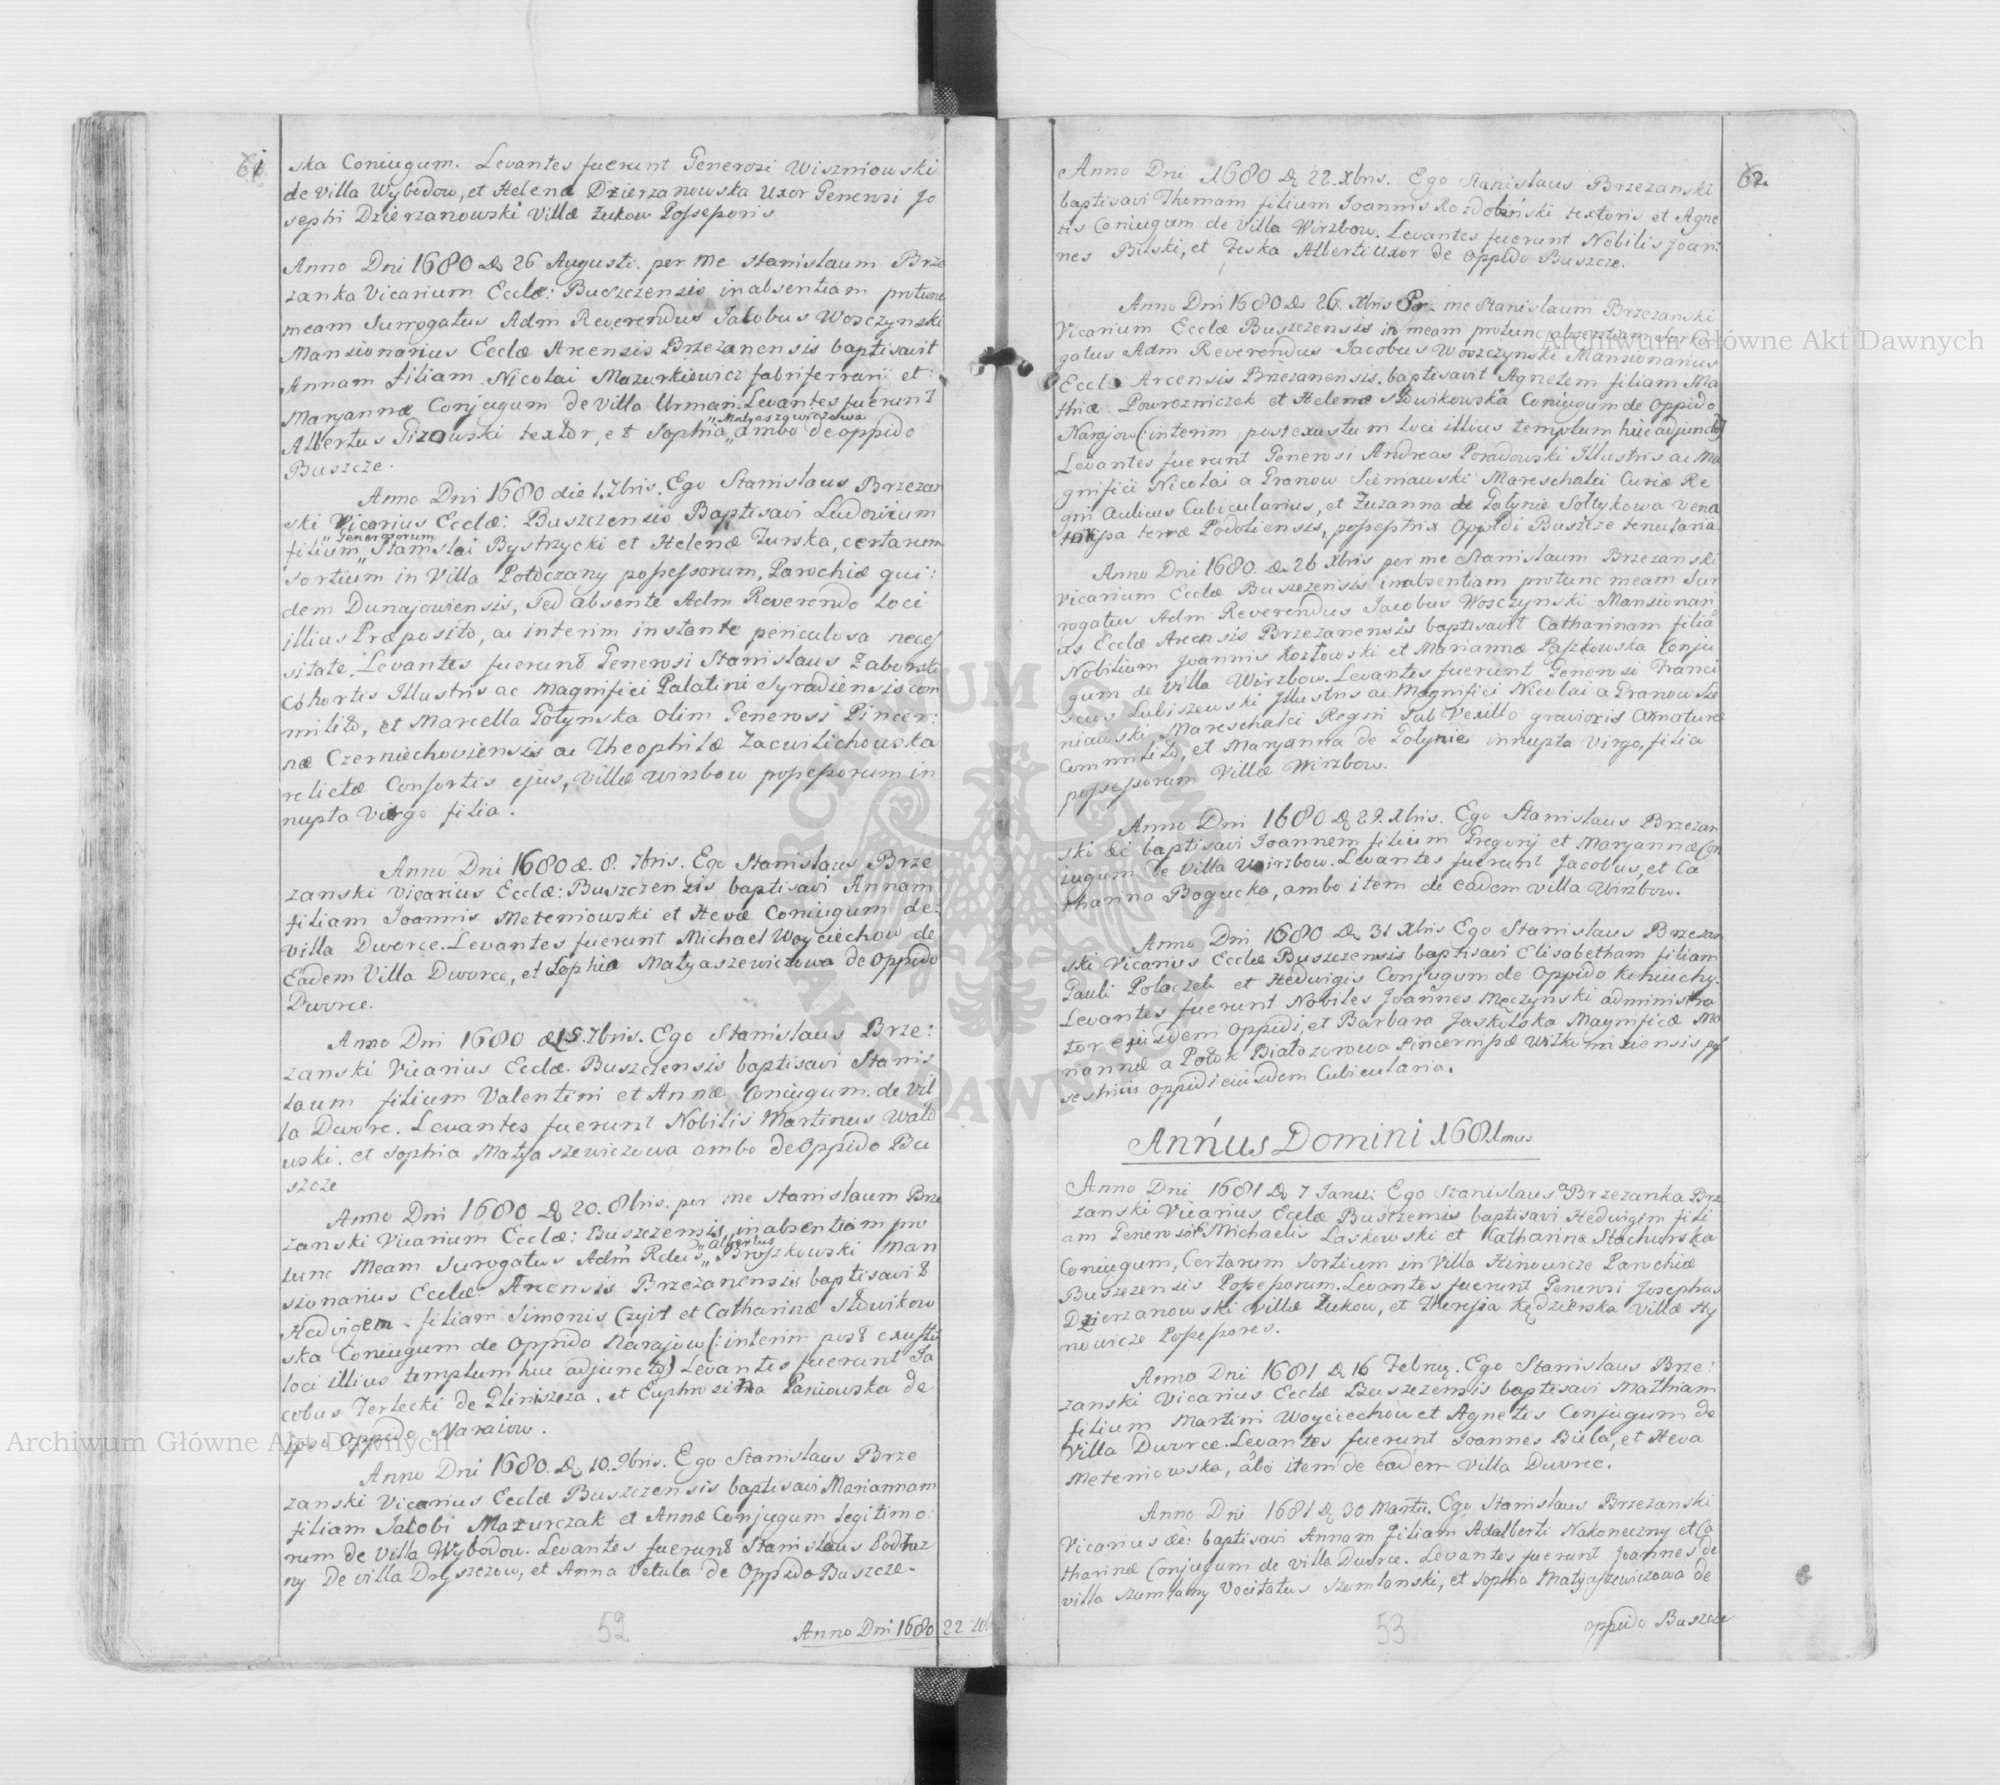 61
ska Coniugum. Levantes fuerunt Generosi Wiszniowski
de Villa Wybodow, et Helena Dzierzanowska Uxor Generosi Jo
sephi Dzierzanowski Villæ Zukow Possessoris
Anno Dni 1680 D. 26 Augusti. per me Stanislaum Brze
zanka Vicarium Ecclæ: Buszczensis in absentiam protunc
meam Surrogatus Adm Reverendus Jacobus Woszczynski
Mansionarius Ecclæ Arcensis Brzezanensis baptisavit
Annam filiam Nicolai Mazurkiewicz fabriferrarii et
Maryannæ Conjugum de Villa Urman. Levantes fuerunt
Albertus Pizowski textor, et Sophia „Matyaszowiczowa ambo de oppido
Buszcze.
Anno Dni 1680 die 1. 7bris. Ego Stanislaus Brzezan
ski Vicarius Ecclæ: Buszczensis Baptisavi Ludovicum
filium „Generosorum Stanislai Bystrzycki et Helenæ Zurska, certarum
sortium in Villa Potoczany possessorum, Parochiæ qui:
dem Dunajowiensis, sed absente Adm Reverendo Loci
illius Præposito, ac interim instante periculosa neces
sitate. Levantes fuerunt Generosi Stanislaus Zaborski
Cohortis Illustris ac Magnifici Palatini Syradiensis com
milito, et Marcella Gołynska olim Generosi Pincer:
næ Czerniechoviensis ac Theophilæ Zacwilichowska
relictæ Consortis ejus, Villæ Wirzbow possessorum in
nupta Virgo filia.
Anno Dni 1680 d. 8. 7bris. Ego Stanislaus Brze
zanski Vicarius Ecclæ: Buszczensis baptisavi Annam
filiam Joannis Meteniowski et Hevæ Coniugum de
Villa Dworce. Levantes fuerunt Michael Woyciechow de
Eadem Villa Dworce, et Sophia Matyaszewiczowa de Oppido
Dworce.
Anno Dni 1680 D. 15. 7bris. Ego Stanislaus Brze:
zanski Vicarius Ecclæ. Buszczensis baptisavi Stanis
laum filium Valentini et Annæ Coniugum. de Vil
la Dworc. Levantes fuerunt Nobilis Martinus Wało
wski. et Sophia Matyaszewiczowa ambo de Oppido Bu
szcze
Anno Dni 1680 D. 20. 8bris. per me Stanislaum Brze
zanski Vicarium Ecclæ: Buszczensis in absentiam pro
tunc Meam Surogatus Adm Rdus „Albertus Broszkowski Man
sionarius Ecclæ Arcensis Brzezanensis baptisavit
Hedvigem filiam Simonis Czyit et Catharinæ Słowikow
ska Coniugum de Oppido Narajow (: interim post exusti
loci illius templum huc adjuncto) Levantes fuerunt Ja
cobus Terlecki de Gliniszcza. et Euphrosina Paniowska de
ipso Oppido Naraiow.
Anno Dni 1680. D. 10. 9bris. Ego Stanislaus Brze
zanski Vicarius Ecclæ Buszczensis baptisavi Mariannam
filiam Jacobi Mazurczak et Annæ Conjugum legitimo:
rum de Villa Wybodow. Levantes fuerunt Stanislaus Podłuz
ny De Villa Dryszczow, et Anna Vetula de Oppido Buszcze.
52
Anno Dni 1680 22
62.
Anno Dni 1680 D. 22. Xbris. Ego Stanislaus Brzezanski
baptisavi Thomam filium Joannis Rozdolinski textoris et Agne
tis Coniugum de Villa Wirzbow. Levantes fuerunt Nobilis Joan
nes Bilski, et Zeska Alberti Uxor de Oppido Buszcze.
Anno Dni 1680 D. 26. Xbris Per me Stanislaum Brzezanski
Vicarium Ecclæ Buszczensis in meam protunc absentiam Surro
gatus Adm Reverendus Jacobus Woszczynski Mansionarius
Ecclæ Arcensis Brzezanensis. baptisavit Agnetem filiam Ma
thiæ Powrozniczek et Helenæ Słowikowska Coniugum de Oppido
Narajow (interim post exustum loci illius templum huc adjuncto)
Levantes fuerunt Generosi Andreas Poradowski Illustris ac Ma
gnifici Nicolai a Granow Sieniawski Mareschalci Curiæ Re
gni Aulicus Cubicularius, et Zuzanna de Gołynie Sołtykowa Vena
torissa terræ Podoliensis, possestrix Oppidi Buszcze tenutaria.
Anno Dni 1680. D. 26 Xbris per me Stanislaum Brzezanski
Vicarium Ecclæ Buszczensis in absentiam protunc meam Sur
rogatus Adm Reverendus Jacobus Woszczynski Mansionari
us Ecclæ Arcensis Brzezanensis baptisavit Catharinam filiã
Nobilium Joannis Kozłowski et Mariannæ Paszkowska Conju
gum de Villa Wirzbow. Levantes fuerunt Generosi Franci
scus Lubiszewski Illustris ac Magnifici Nicolai a Granow Sie
niawski Mareschalci Regni Sub Vexillo gravioris Armaturæ
Commilito, et Maryanna de Gołynie innupta Virgo, filia
possessorum Villæ Wirzbow.
Anno Dni 1680 D. 29. Xbris. Ego Stanislaus Brzezan
ski &c baptisavi Joannem filium Gregorij et Maryannæ Con
iugum de Villa Wirzbow. Levantes fuerunt Jacobus, et Ca
tharina Bogucka, ambo item de eadem villa Wirzbow.
Anno Dni 1680 D. 31 Xbris Ego Stanislaus Brzezan
ski Vicarius Ecclæ Buszczensis baptisavi Elisabetham filiam
Pauli Polaczek et Hedwigis Conjugum de Oppido Koniuchy.
Levantes fuerunt Nobiles Joannes Męczynski administra
tor ejusdem Oppidi, et Barbara Jaskolska Magnificæ Ma
riannæ a Potok Białozorowa Pincernissæ Wiłkomiriensis pos
sestricis oppidi eiusdem Cubicularia.
Annus Domini 1681mus
Anno Dni 1681 D. 7 Janu: Ego Stanislaus Brzezanka Brze
zanski Vicarius Ecclæ Buszczensis baptisavi Hedwigim fili
am Generosor Michaelis Laskowski et Katharina Stachurska
Coniugum, Certarum Sortium in Villa Hinowicze Parochiæ
Buszczensis Possessorum. Levantes fuerunt Generosi Josephus
Dzierzanowski Villæ Zukow, et Theressa Kędzierska Villæ Hy
nowicze Possessores.
Anno Dni 1681 D. 16 Febru. Ego Stanislaus Brze:
zanski Vicarius Ecclæ Buszczensis baptisavi Mathiam
filium Martini Woyciechow et Agnetis Conjugum de
Villa Dworce. Levantes fuerunt Joannes Biela, et Heva
Meteniowska, ãbo item de eadem Villa Dworce.
Anno Dni 1681 D. 30 Martii. Ego Stanislaus Brzezanski
Vicarius &c: baptisavi Annam filiam Adalberti Nakoneczny et Ca
tharinæ Conjugum de villa Dworce. Levantes fuerunt Joannes de
villa Szumlany Vocitatus Szumlanski, et Sophia Matyaszewiczowa de
oppido Buszcze
53
Archiwum Główne Akt Dawnych
Archiwum Główne Akt Dawnych
ARCHIWUM GŁÓWNE AKT DAWNYCH